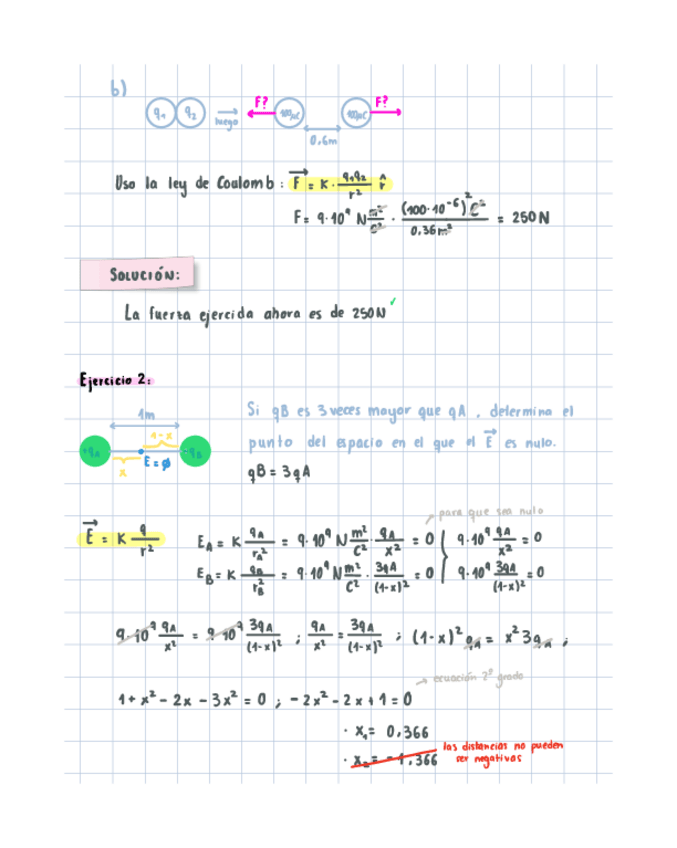 b)
F? F?
q₁ q₂ luego 100μC 100μC
0,6m
Uso la ley de Coulomb: F = K · q₁q₂/r² r̂
F = 9·10⁹ N m²/C² · (100·10⁻⁶)² C²/0,36m² = 250N
SOLUCIÓN:
La fuerza ejercida ahora es de 250N ✓
Ejercicio 2:
1m
1-x
+qA -qB
x E = ø
Si qB es 3 veces mayor que qA, determina el
punto del espacio en el que el E es nulo.
qB = 3qA
para que sea nulo
E = K q/r² EA = K qA/rA² = 9·10⁹ N m²/C² · qA/x² = 0 9·10⁹ qA/x² = 0
EB = K qB/rB² = 9·10⁹ N m²/C² · 3qA/(1-x)² = 0 9·10⁹ 3qA/(1-x)² = 0
9·10⁹ qA/x² = 9·10⁹ 3qA/(1-x)² ; qA/x² = 3qA/(1-x)² ; (1-x)² qA = x² 3qA ;
→ ecuación 2º grado
1 + x² - 2x - 3x² = 0 ; -2x² - 2x + 1 = 0
· x₁ = 0,366
· x₂ = -1,366 las distancias no pueden
ser negativas